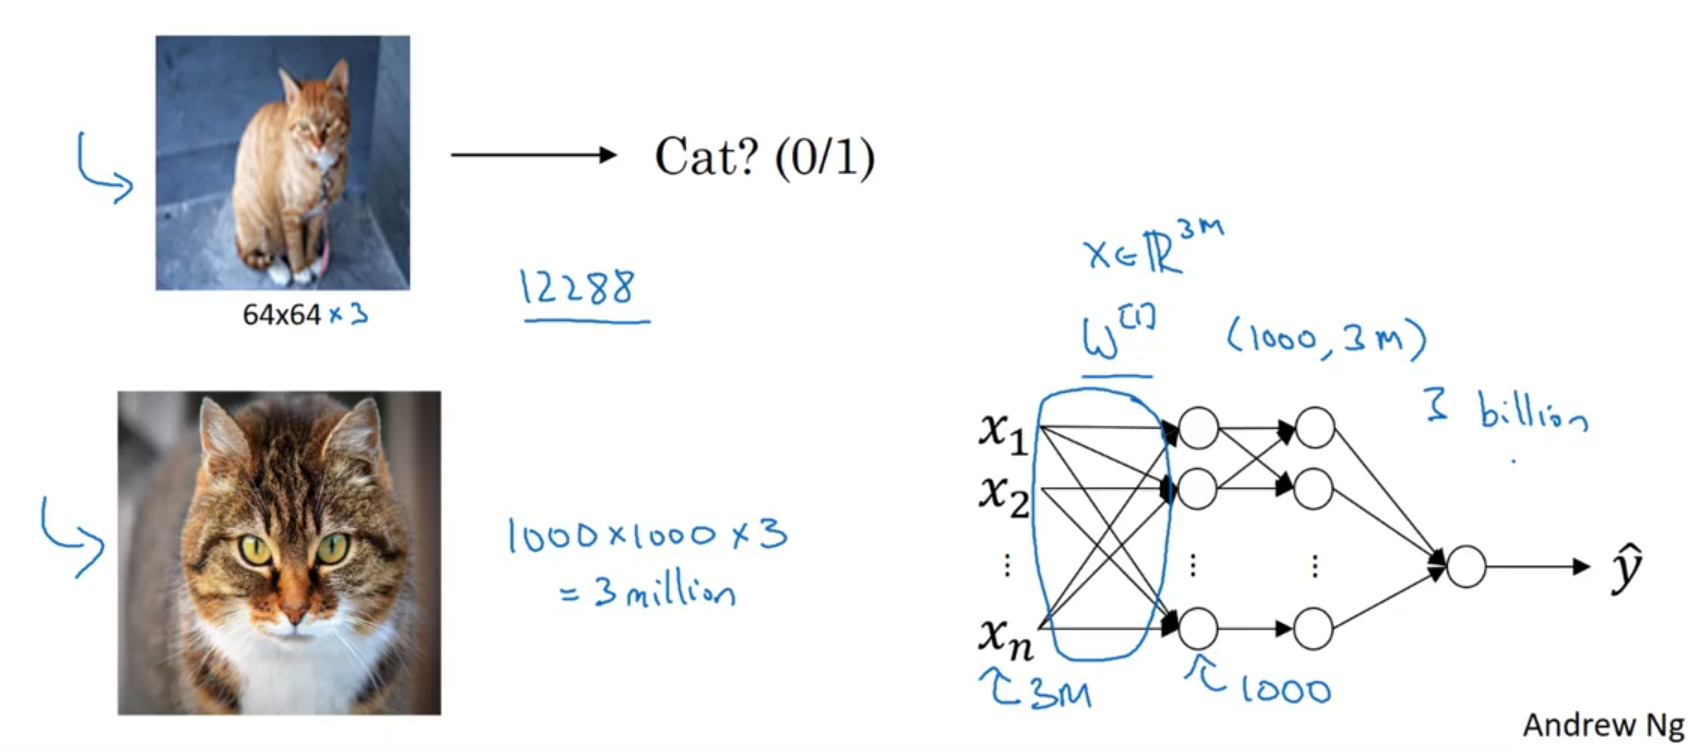 Cat? (0/1)
64x64 × 3
12288
1000×1000 × 3
= 3 million
x ∈ ℝ^3M
W^[1] (1000, 3M)
3 billion
x₁
x₂
⋮ ⋮ ⋮
xₙ
ŷ
3M
1000
Andrew Ng